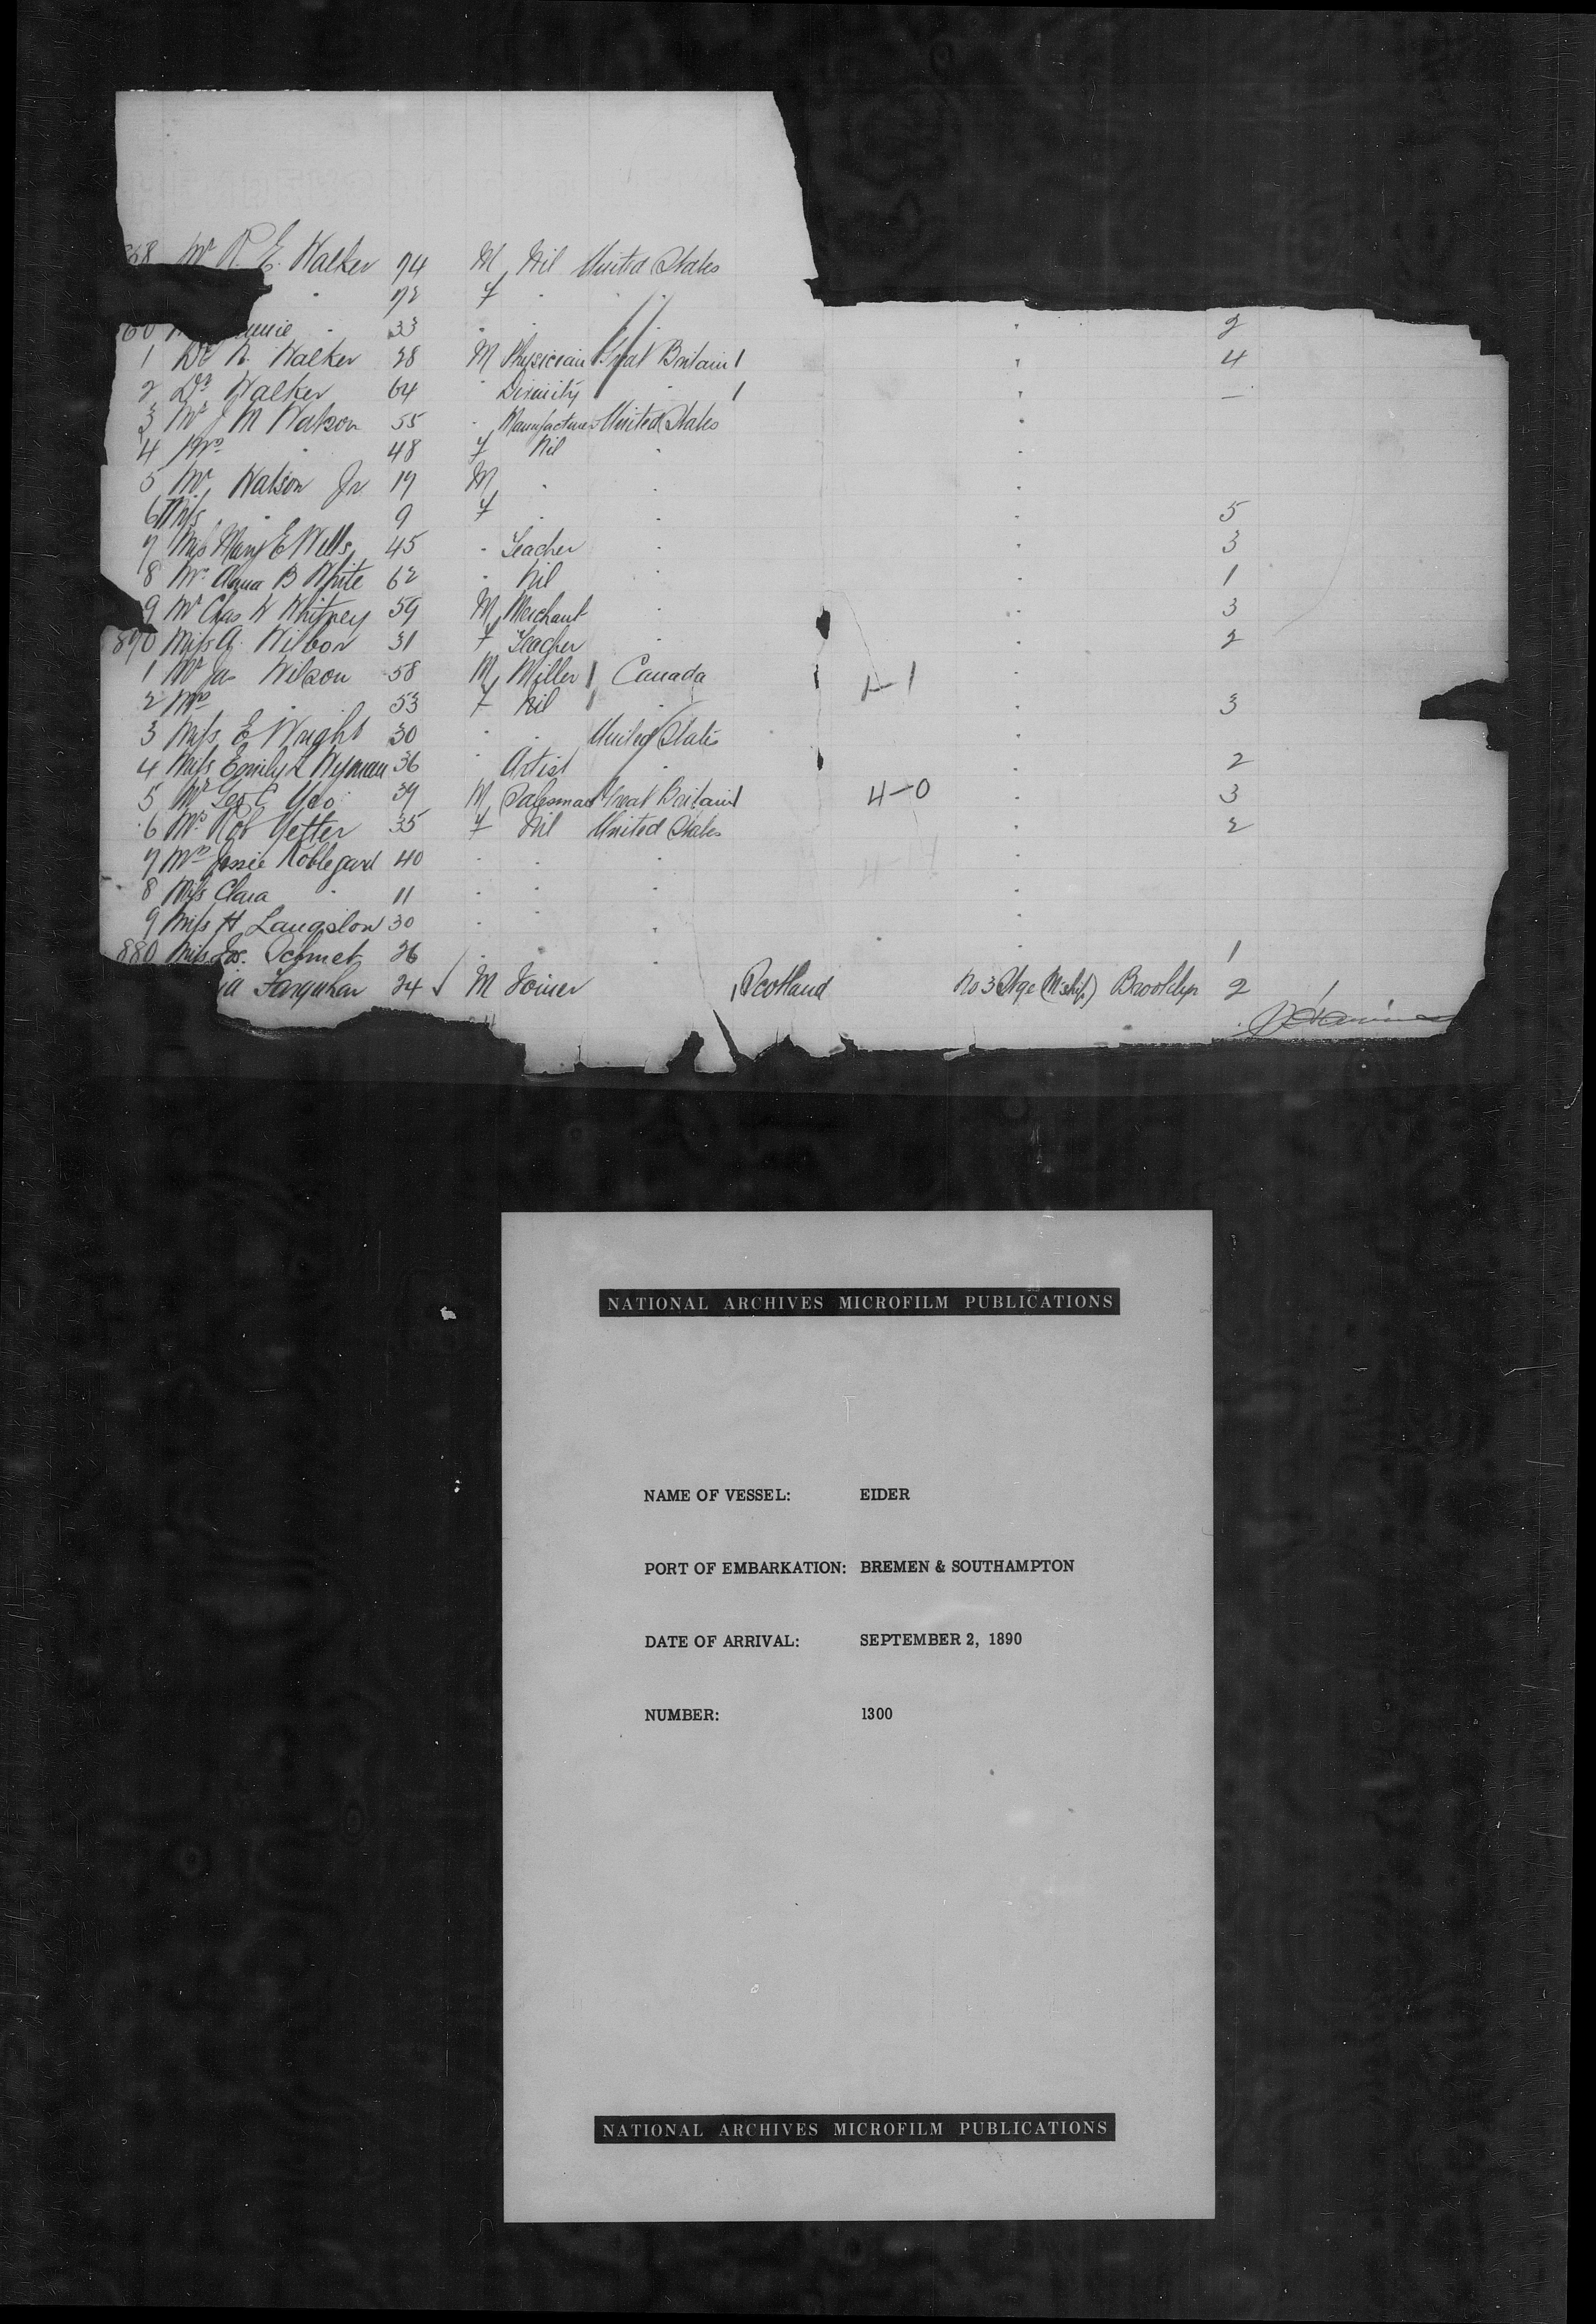 Mr R. E. Walker 74 M Nil United States
" 72 F " "
33 " " " " 2
1 Dr R. Walker 28 M Physician Great Britain 1 " 4
2 Dr Walker 64 " Divinity " 1 " —
3 Mr J M Watson 55 " Manufacturer United States "
4 Mrs " 48 F Nil " "
5 Mr Watson Jr. 17 M " " "
6 Miss " 9 F " " " 5
7 Miss Mary E Wells 45 " Teacher " " 3
8 Mrs Anna B White 62 " Nil " " 1
9 Mr Chas W Whitney 59 M Merchant " " 3
870 Miss A. Wilbor 31 F Teacher " " 2
1 Mr Jas Wilson 58 M Miller Canada 1-1 "
2 Mrs " 53 F Nil " " 3
3 Miss E Wright 30 " " United States "
4 Miss Emily L Wyman 36 " Artist " " 2
5 Mr Geo C Yeo 39 M Salesman Great Britain 4-0 " 3
6 Mrs Rob Yetter 35 F Nil United States " 2
7 Mrs Jessie Koblegard 40 " " " "
8 Miss Clara " 11 " " " "
9 Miss H Langslow 30 " " " "
880 Miss Schmet 26 " " " " 1
Farquhar 24 ✓ M Joiner Scotland No 3 Stge (M'ship) Brooklyn 2
NATIONAL ARCHIVES MICROFILM PUBLICATIONS
NAME OF VESSEL: EIDER
PORT OF EMBARKATION: BREMEN & SOUTHAMPTON
DATE OF ARRIVAL: SEPTEMBER 2, 1890
NUMBER: 1300
NATIONAL ARCHIVES MICROFILM PUBLICATIONS